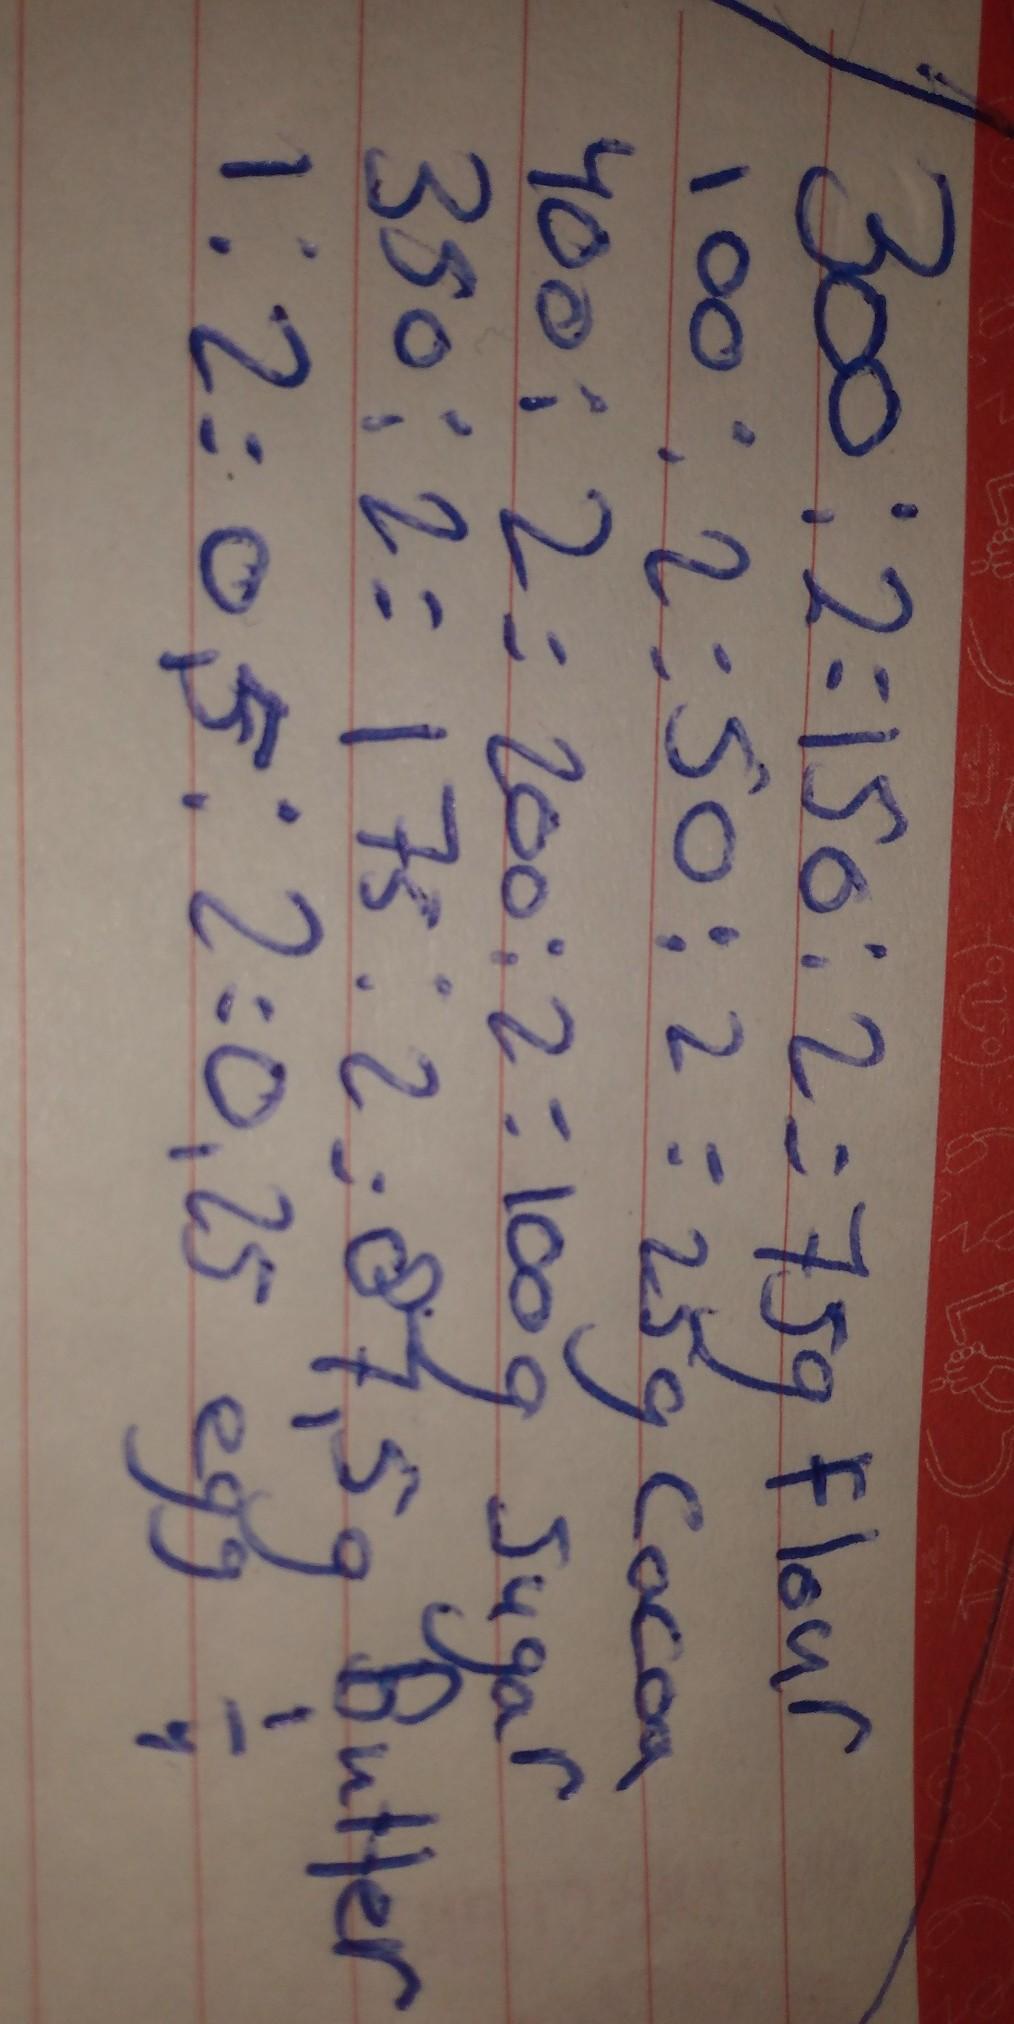 300:2=150:2=75g Flour
100:2=50:2=25g Cacoa
400:2=200:2=100g Sugar
350:2=175:2=87,5g Butter
1:2=0,5:2=0,25 egg 1/4